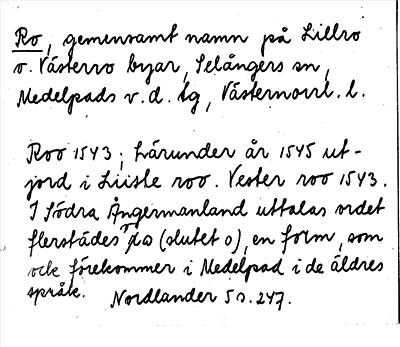 Ro, gemensamt namn på Lillro
o. Västerro byar, Selångers sn,
Medelpads v. d. tg, Västernorrl. l.
Roo 1543; härunder år 1545 ut-
jord i Liistle roo. Vester roo 1543.
I Södra Ångermanland uttalas ordet
flerstädes (slutet o), en form, som
ock förekommer i Medelpad i de äldres
språk. Nordlander 5 s. 247.